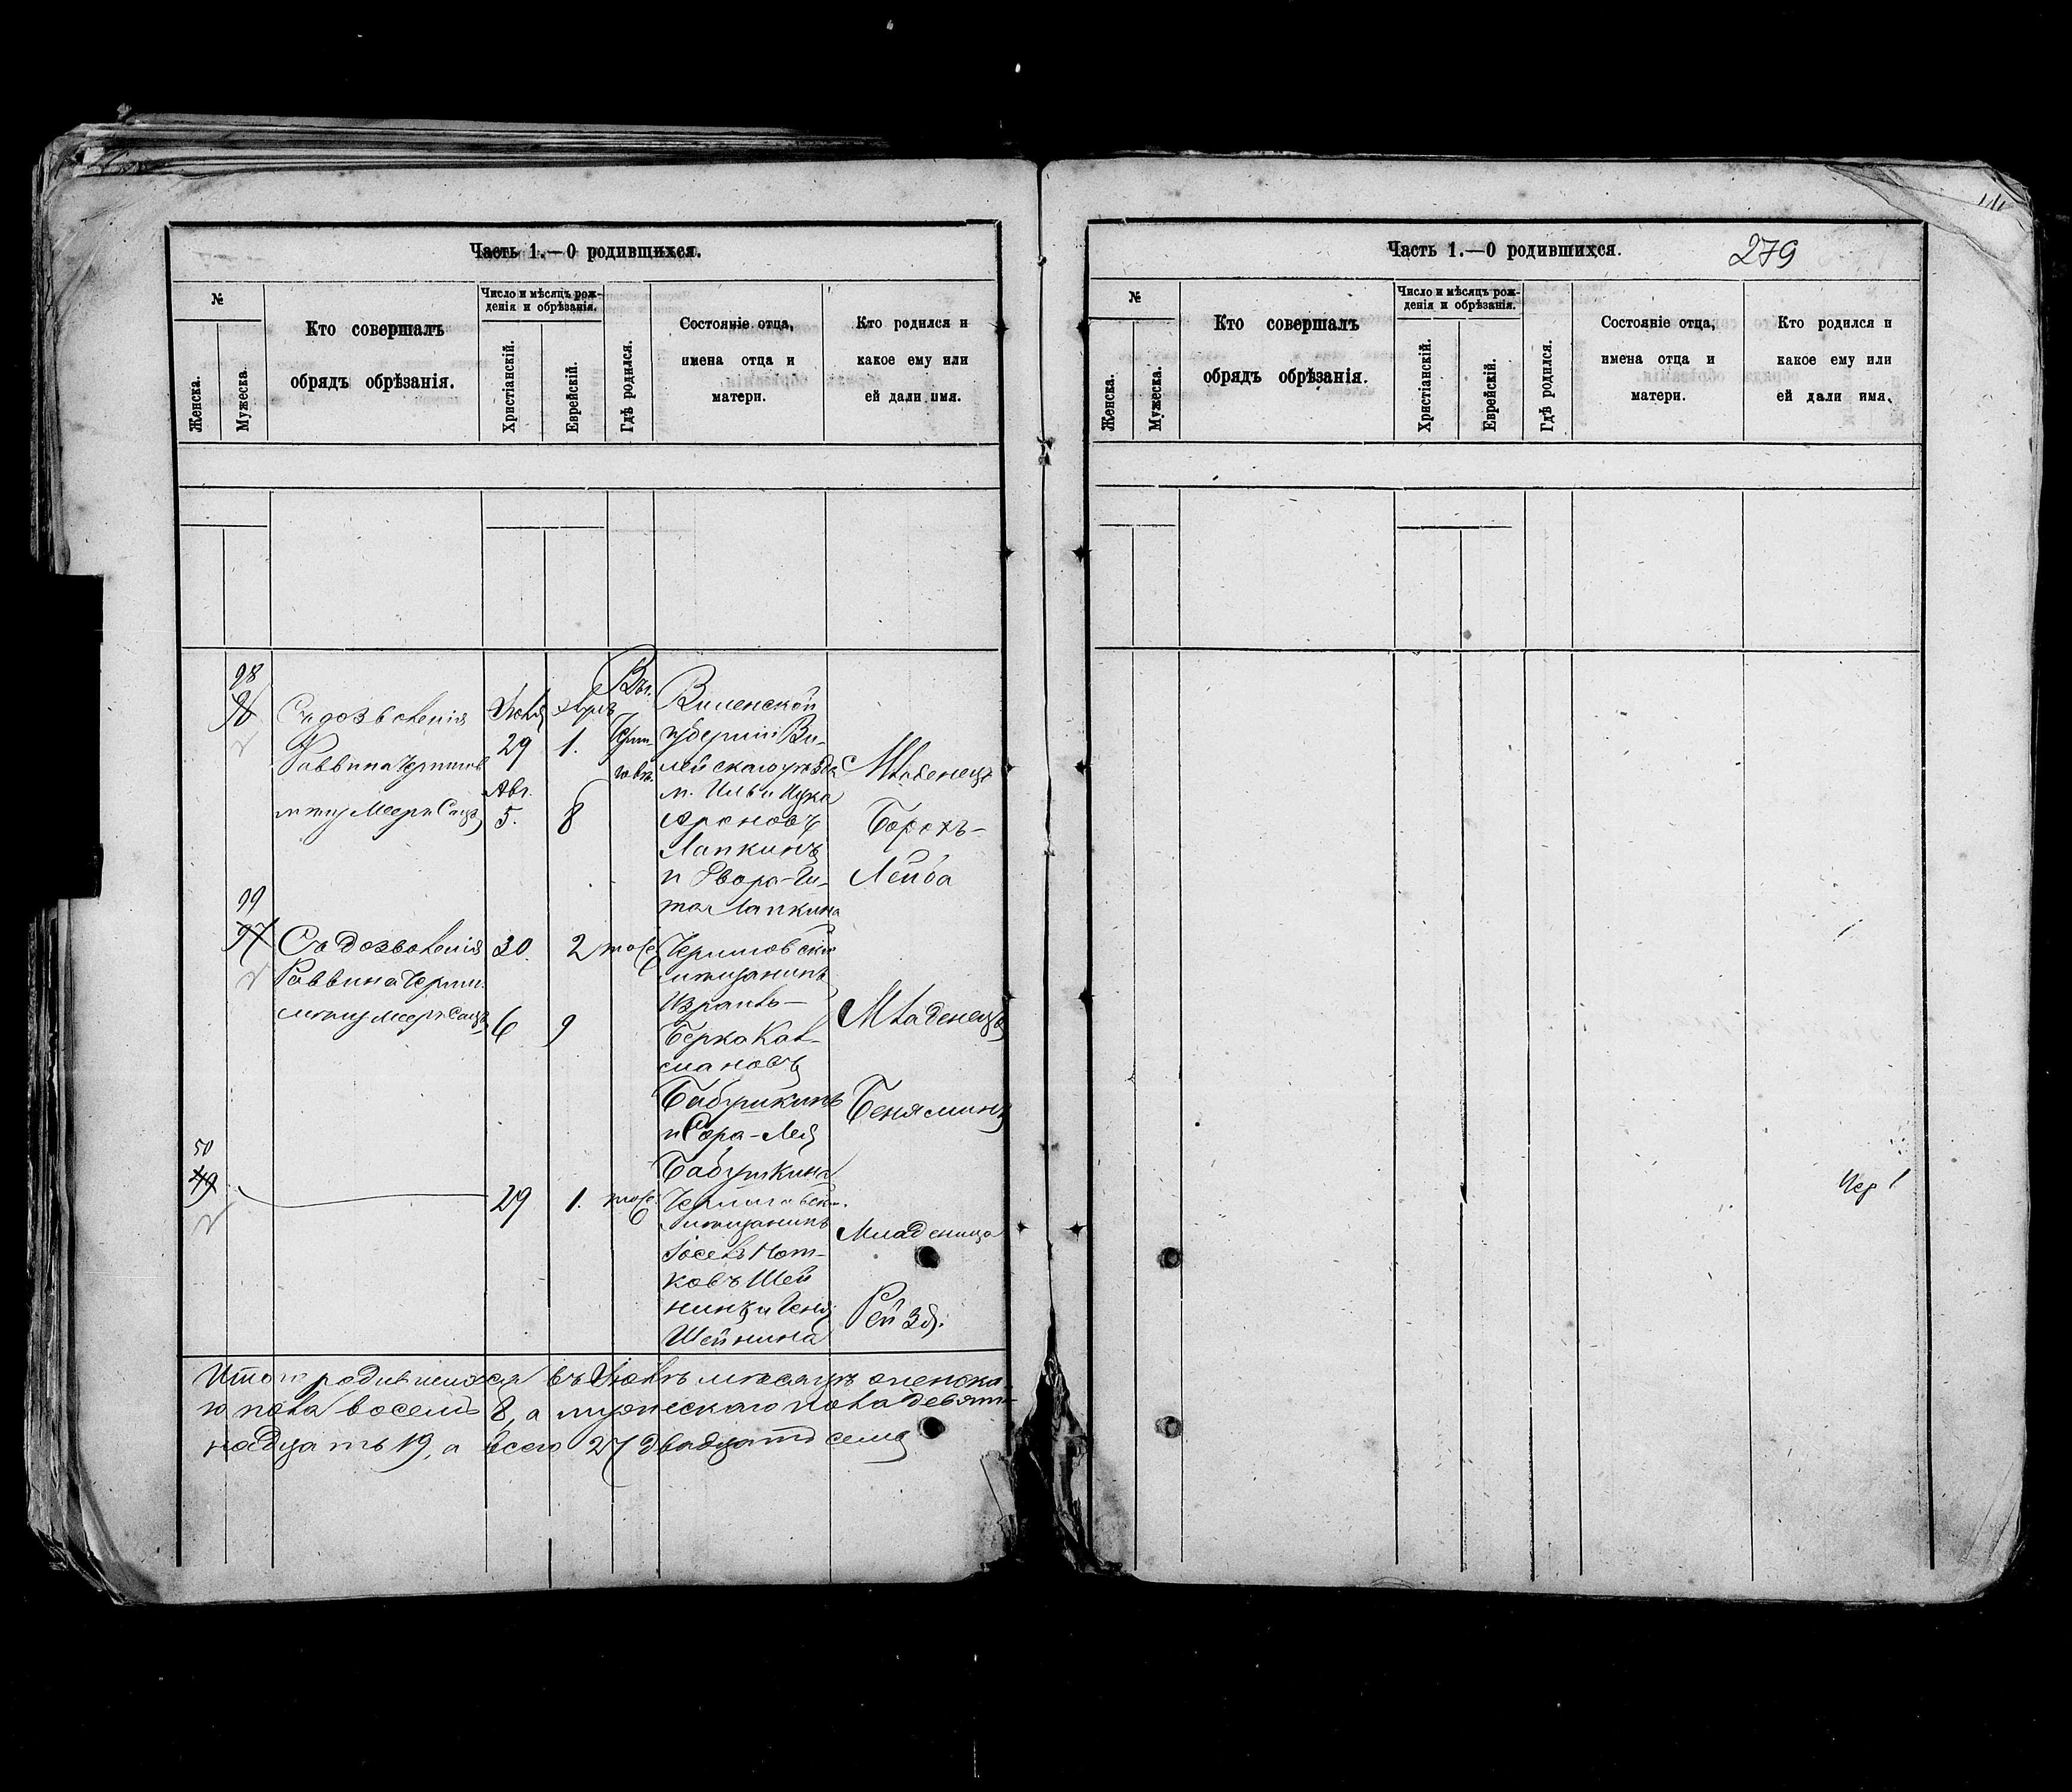 Часть 1.—О родившихся.
№
Женска.
Мужеска.
Кто совершалъ
обрядъ обрѣзанія.
Число и мѣсяцъ рож-
денія и обрѣзанія.
Христіанскій.
Еврейскій.
Гдѣ родился.
Состояніе отца,
имена отца и
матери.
Кто родился и
какое ему или
ей дали имя.
98
96
Съ дозволенія
Раввина
Мееръ Сацъ
29
Авг.
5.
1.
8
Въ г.
Черни-
говѣ.
Виленской
губерніи Ви-
лейскаго уѣзда
м. Ильи
Ароновъ
Лапкинъ
и Двора-Ги-
тля Лапкина
Младенецъ
Борохъ-
Лейба
99
97
Съ дозволенія
Раввина Черни.
Мееръ Сацъ
30.
6
2
9
тоже
Черниговскій
мѣщанинъ
Израиль-
Берка Кал-
мановъ
Бабушкинъ
и Сора-Лея
Бабушкина
Младенецъ
Беняминъ
50
49
29
1.
тоже
Черниговскій
мѣщанинъ
Іосель Нот-
ковъ Шей
нинъ и Геня
Шейнина
Младеница
Рейзя.
Итого родившихся въ Іюлѣ мѣсяцѣ женска
го пола восемь 8, а мужескаго пола девят-
надцать 19, а всего 27 двадцать семь
Часть 1.—О родившихся.
279
№
Женска.
Мужеска.
Кто совершалъ
обрядъ обрѣзанія.
Число и мѣсяцъ рож-
денія и обрѣзанія.
Христіанскій.
Еврейскій.
Гдѣ родился.
Состояніе отца,
имена отца и
матери.
Кто родился и
какое ему или
ей дали имя.